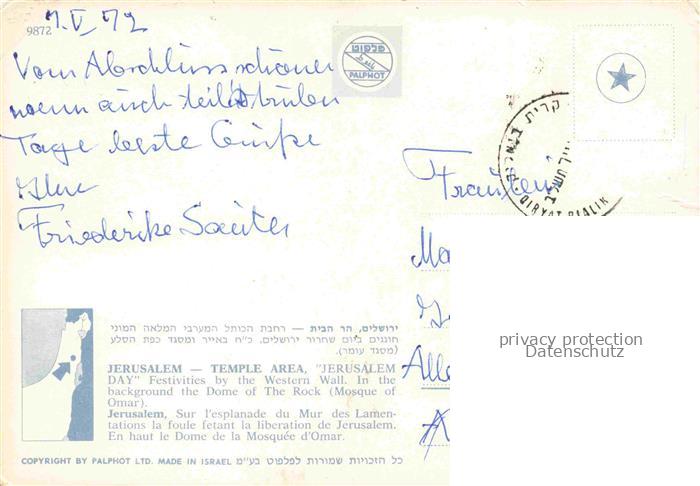 9872
7.V.72
Vom Abschluss schöner
wenn auch teils trüben
Tage beste Grüße
Ihre
Friederike
פלפוט
PALPHOT
קרית
QIRYAT BIALIK
Fräulein
privacy protection
Datenschutz
ירושלים, הר הבית — רחבת הכותל המערבי המלאה המוני
חוגגים ביום שחרור ירושלים, כ"ח באייר ומסגד כפת הסלע
(מסגד עומר).
JERUSALEM — TEMPLE AREA, "JERUSALEM
DAY" Festivities by the Western Wall. In the
background the Dome of The Rock (Mosque of
Omar).
Jerusalem, Sur l'esplanade du Mur des Lamen-
tations la foule fetant la liberation de Jerusalem.
En haut le Dome de la Mosquée d'Omar.
COPYRIGHT BY PALPHOT LTD. MADE IN ISRAEL כל הזכויות שמורות לפלפוט בע"מ